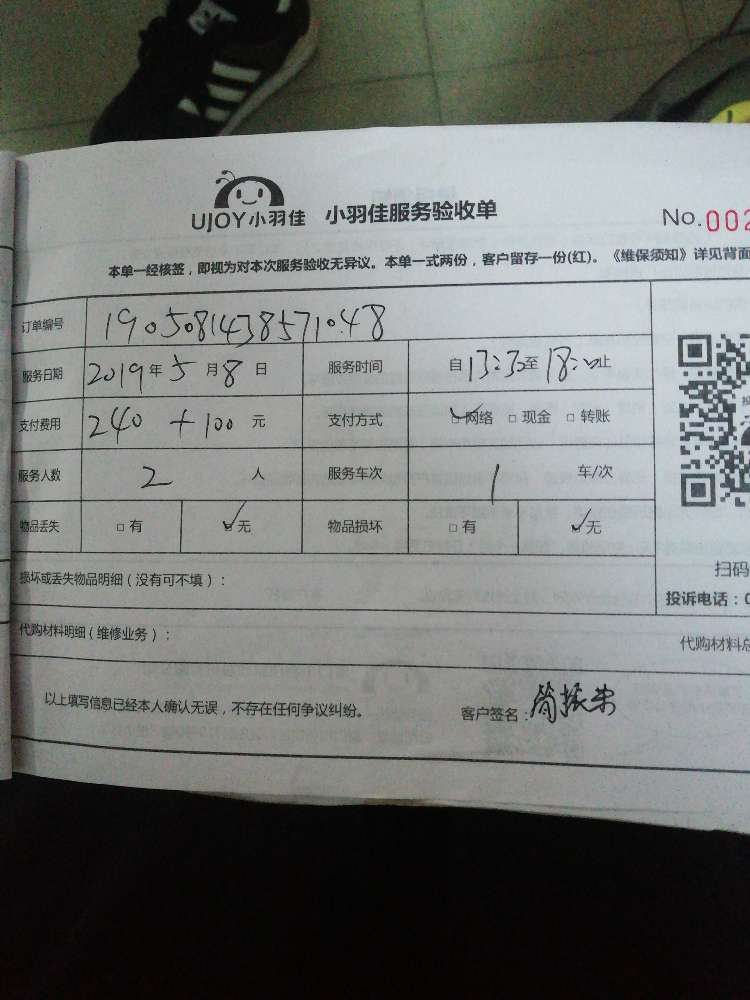 UJOY小羽佳 小羽佳服务验收单 No.002
本单一经核签，即视为对本次服务验收无异议。本单一式两份，客户留存一份(红)。《维保须知》详见背面
订单编号 1905081438571048
服务日期 2019年5月8日 服务时间 自13:30至18:00止
支付费用 240+100元 支付方式 ☑网络 □现金 □转账
服务人数 2人 服务车次 1车/次
物品丢失 □有 ☑无 物品损坏 □有 ☑无
扫码
损坏或丢失物品明细（没有可不填）：
投诉电话：0
代购材料明细（维修业务）：
代购材料总
以上填写信息已经本人确认无误，不存在任何争议纠纷。 客户签名：简振荣